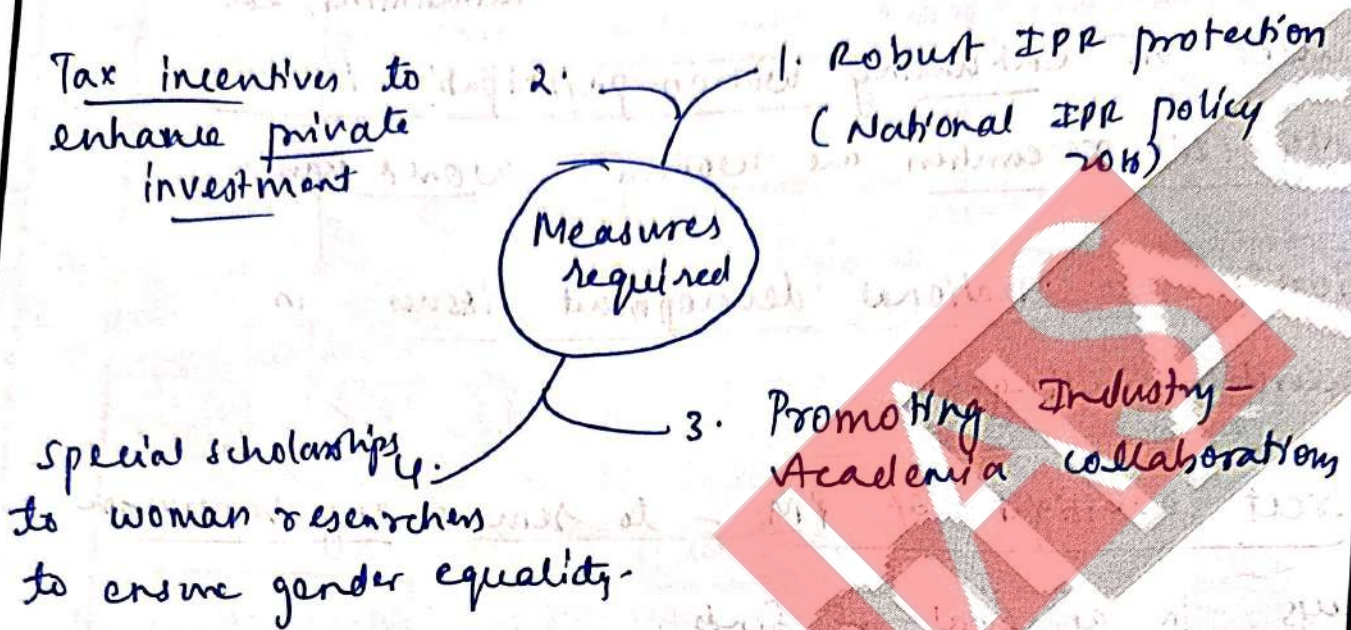 1. Robust IPR protection
(National IPR policy
2016)
2.
Tax incentives to
enhance private
investment
Measures
required
3. Promoting Industry-
Academia collaborations
4.
special scholarships
to woman researchers
to ensure gender equality.
IAS